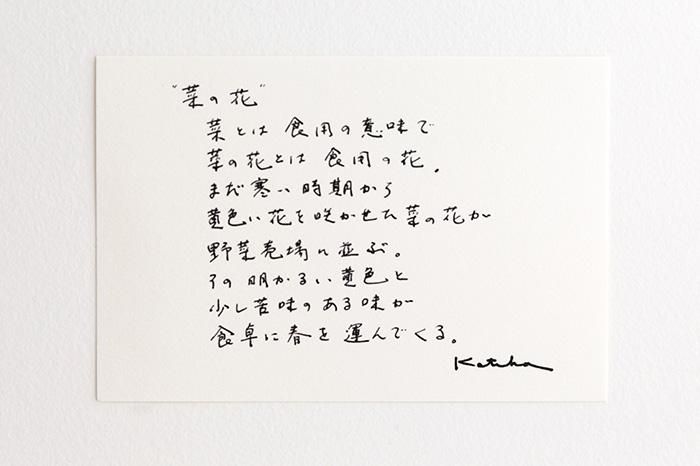 "菜の花"
菜とは 食用の意味で
菜の花とは 食用の花.
まだ寒い時期から
黄色い花を咲かせた菜の花が
野菜売場に並ぶ。
その明かるい黄色と
少し苦味のある味が
食卓に春を運んでくる。